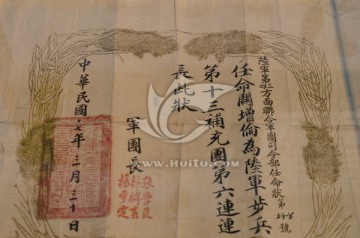 陸軍第三方面聯合軍團司令部任命狀第 號
任命關增倫為陸軍步兵
第十三補充團第六連連
長此狀
軍團長
中華民國 七年三月三十日
HuiTu.com